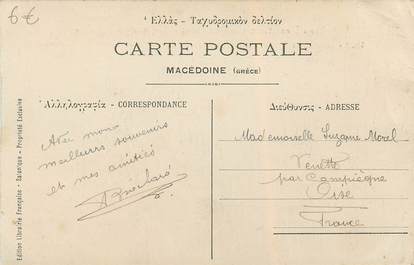 6€
Ἑλλὰς - Ταχυδρομικὸν δελτίον
CARTE POSTALE
MACÉDOINE (GRÈCE)
Ἀλληλογραφία - CORRESPONDANCE
Διεύθυνσις - ADRESSE
Avec mon
meilleurs souvenirs
et mes amitiés
Mademoiselle Suzanne Morel
Venette
par Compiègne
Oise
France
Edition Librairie Française - Salonique - Propriété Exclusive